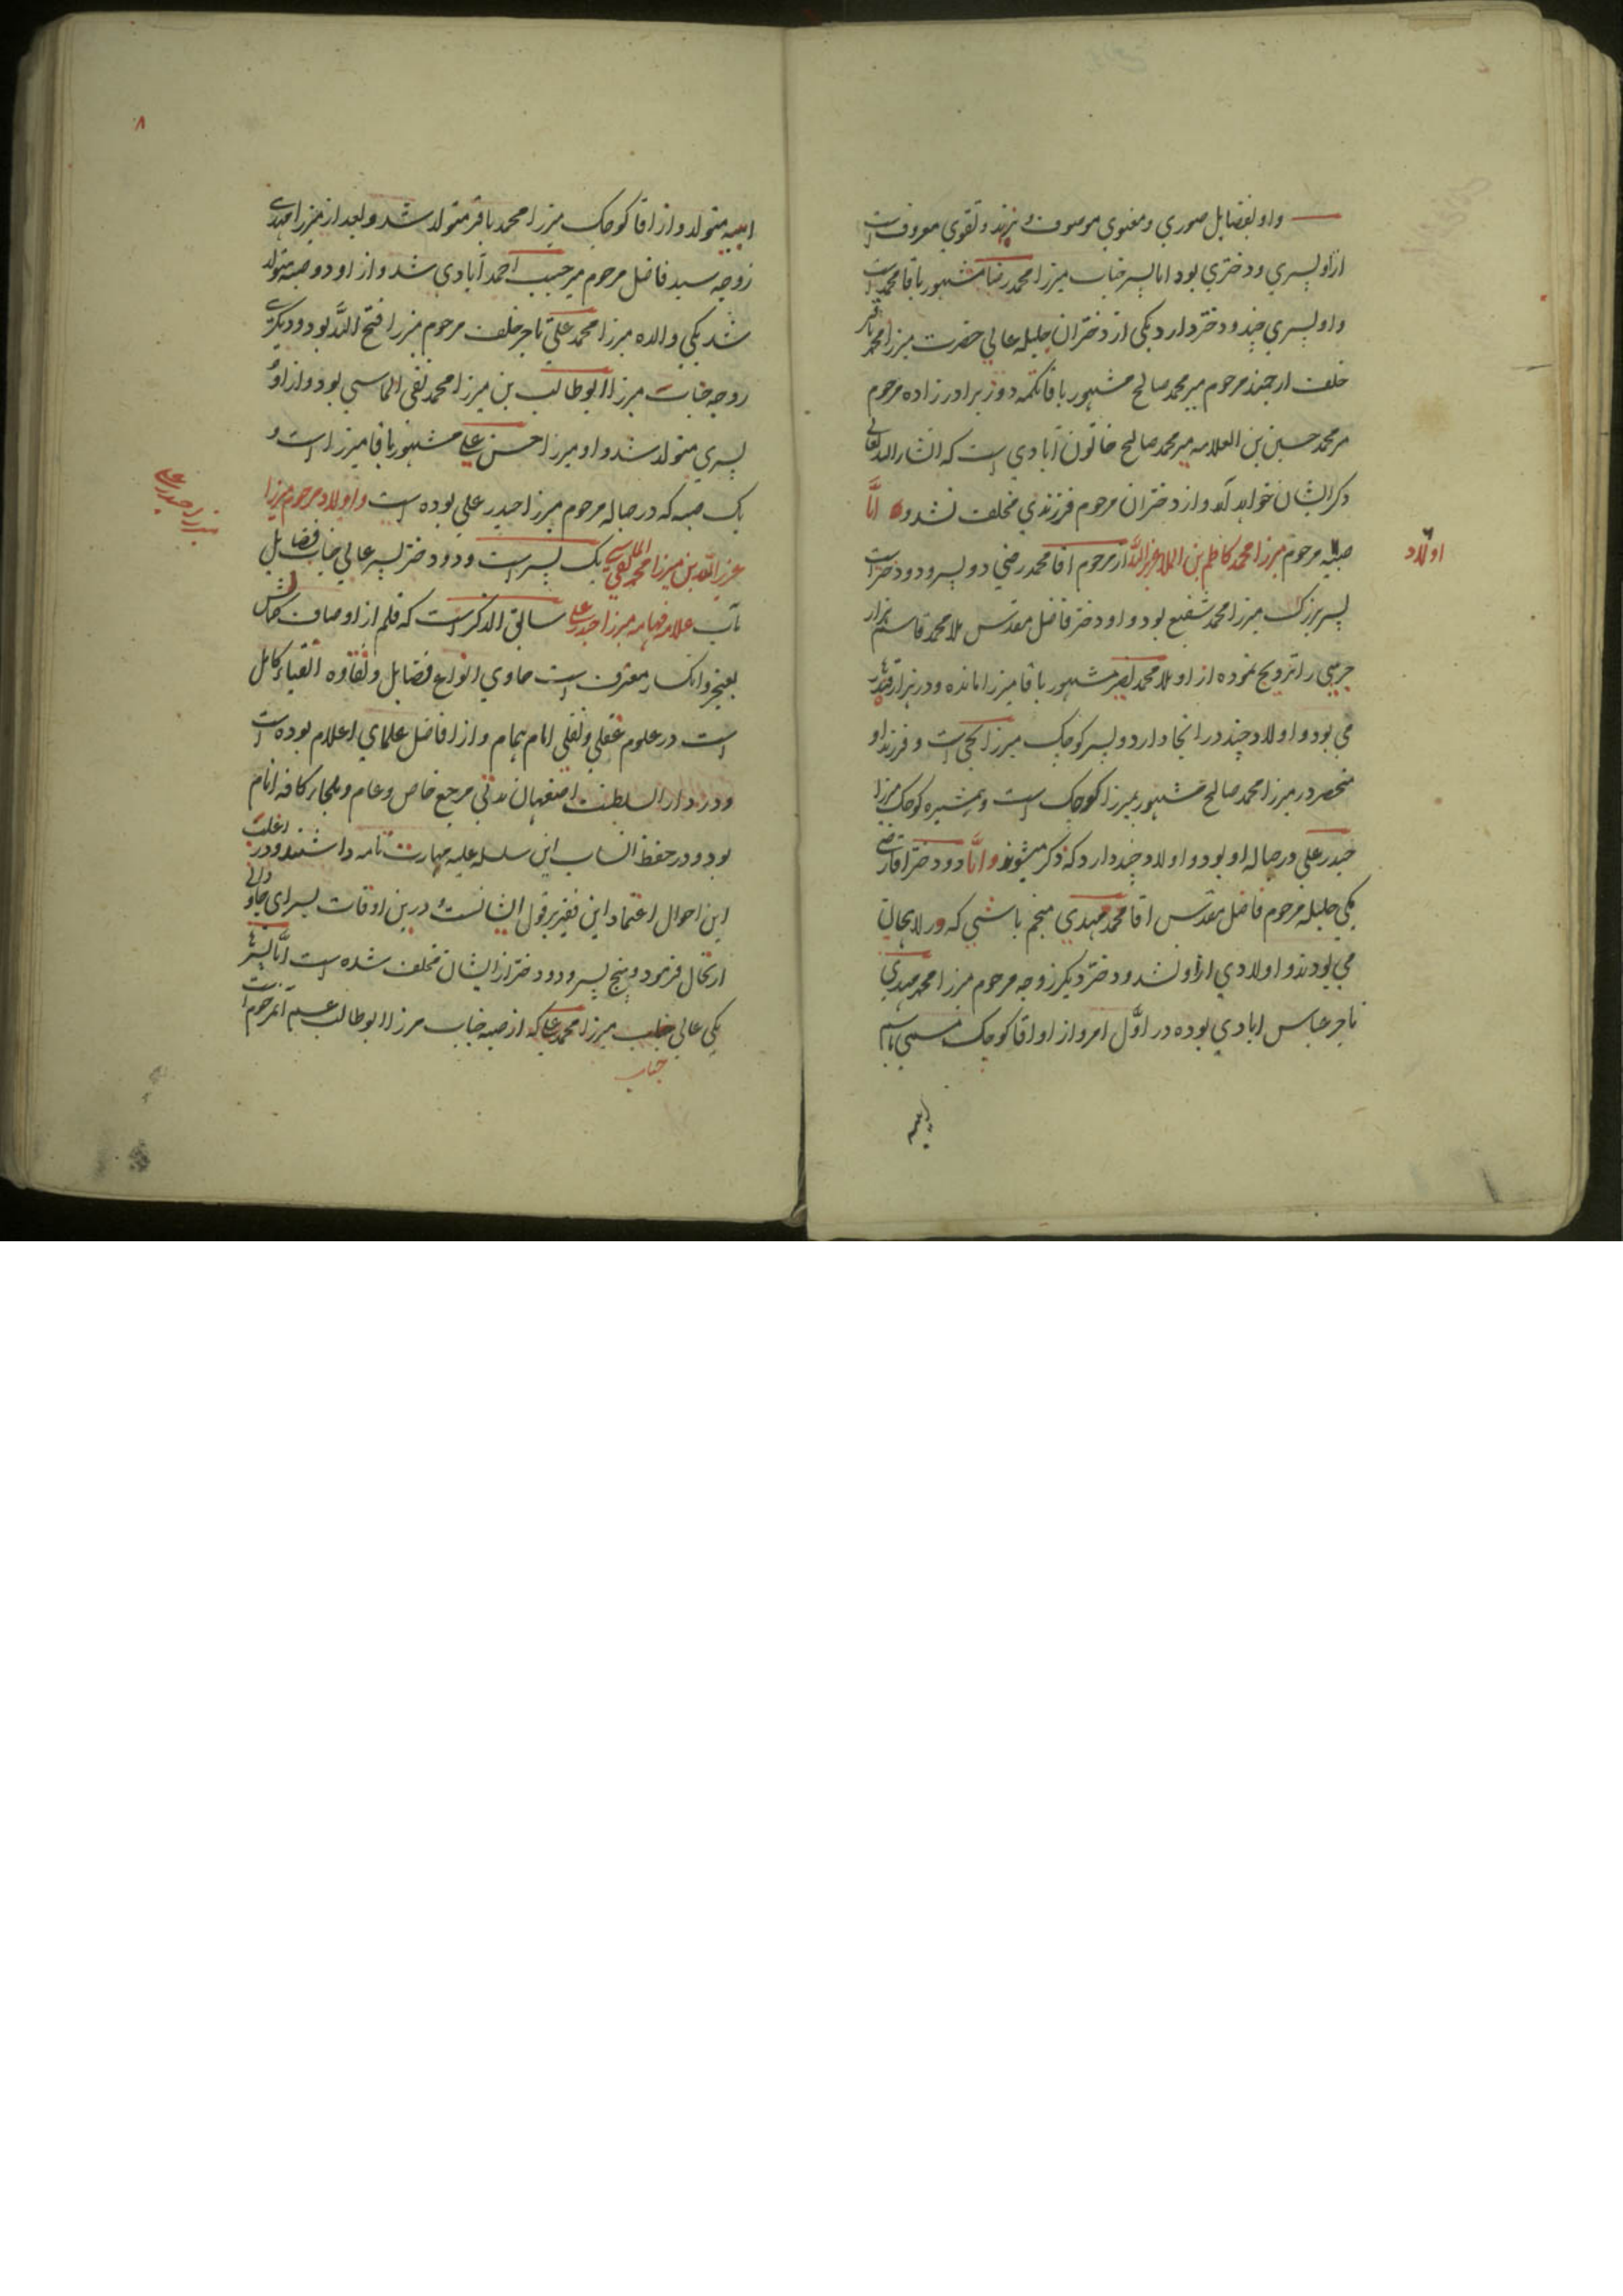 واو بفضایل صوری و معنوی موصوف و بزهد و تقوی معروف است
ازاو پسری و دختری بود اما پسر جناب میرزا محمد رضا مشهور باقا محمد است
واو پسری چند و دختر دارد یکی از دختران جلیله عالی حضرت میرزا محمد باقر
خلف ارجمند مرحوم میر محمد صالح مشهور باقا تکمه دوز برادر زاده مرحوم
میر محمد حسین بن العلامه میر محمد صالح خاتون آبادی است که انشاء الله تعالی
ذکر ایشان خواهد آمد و از دختران مرحوم فرزندی مخلف نشد و اما
اولاد
صبیه مرحوم میرزا محمد کاظم بن الملا عزیز الله از مرحوم اقا محمد رضی دو پسر و دو دختر است
پسر بزرک میرزا محمد شفیع بود و او دختر فاضل مقدس ملا محمد قاسم هزار
جریبی را تزویج نموده از او ملا محمد نصیر مشهور باقا میرزا مانده و در هزار
می بود و اولاد چند در انجا دارد و پسر کوچک میرزا است و فرزند او
منحصر در میرزا محمد صالح مشهور بمیرزا کوچک است و همشیره کوچک میرزا
حیدر علی در حباله او بود و اولاد چند دارد که ذکر میشوند و اما دو دختر اقا رضی
یکی حلیله مرحوم فاضل مقدس اقا محمد مهدی منجم باشی که در لاهیجان
می بودند و اولادی از او نشد و دختر دیکر زوجه مرحوم میرزا محمد مهدی
تاجر عباس ابادی بوده در اول امر و از او اقا کوچک مسمی باسم
ابیه
۸
ابیه متولد و از اقا کوچک میرزا محمد باقر متولد شد و بعد از میرزا مهدی
زوجه سید فاضل مرحوم میر حبیب احمد آبادی شد و از او دو صبیه متولد
شد یکی والده میرزا محمد علی تاجر خلف مرحوم میرزا فتح الله بود و دیکری
زوجه جناب میرزا ابو طالب بن میرزا محمد تقی الماسی بود و از او
پسری متولد شد و او میرزا حسن علی مشهور باقا میرزا است و
یک صبیه که در حباله مرحوم میرزا حیدر علی بوده است و اولاد مرحوم میرزا
میرزا حیدر علی
عزیز الله بن میرزا محمد تقی الماسی یک پسر است و دو دختر پسر عالی جناب فضایل
مآب علامه فهامه میرزا حیدر علی سابق الذکر است که قلم از اوصاف کمالش
بعجز و انکسار معترف است حاوی انواع فضایل و نقاوه اتقیاء کامل
است در علوم عقلی و نقلی امام همام و از افاضل علمای اعلام بوده است
و در دار السلطنت اصفهان مدتی مرجع خاص و عام و ملجاء کافه انام
بود و در حفظ انساب این سلسله علیه مهارت تامه داشتند و در اغلب
این احوال اعتماد این فقیر بر قول ایشانست درین اوقات بسرای جاودانی
ارتحال فرمود و پنج پسر و دو دختر از ایشان مخلف شده است اما پسرها
یکی عالی جناب میرزا محمد علی که از صبیه جناب میرزا ابو طالب عم آنمرحوم است
جناب